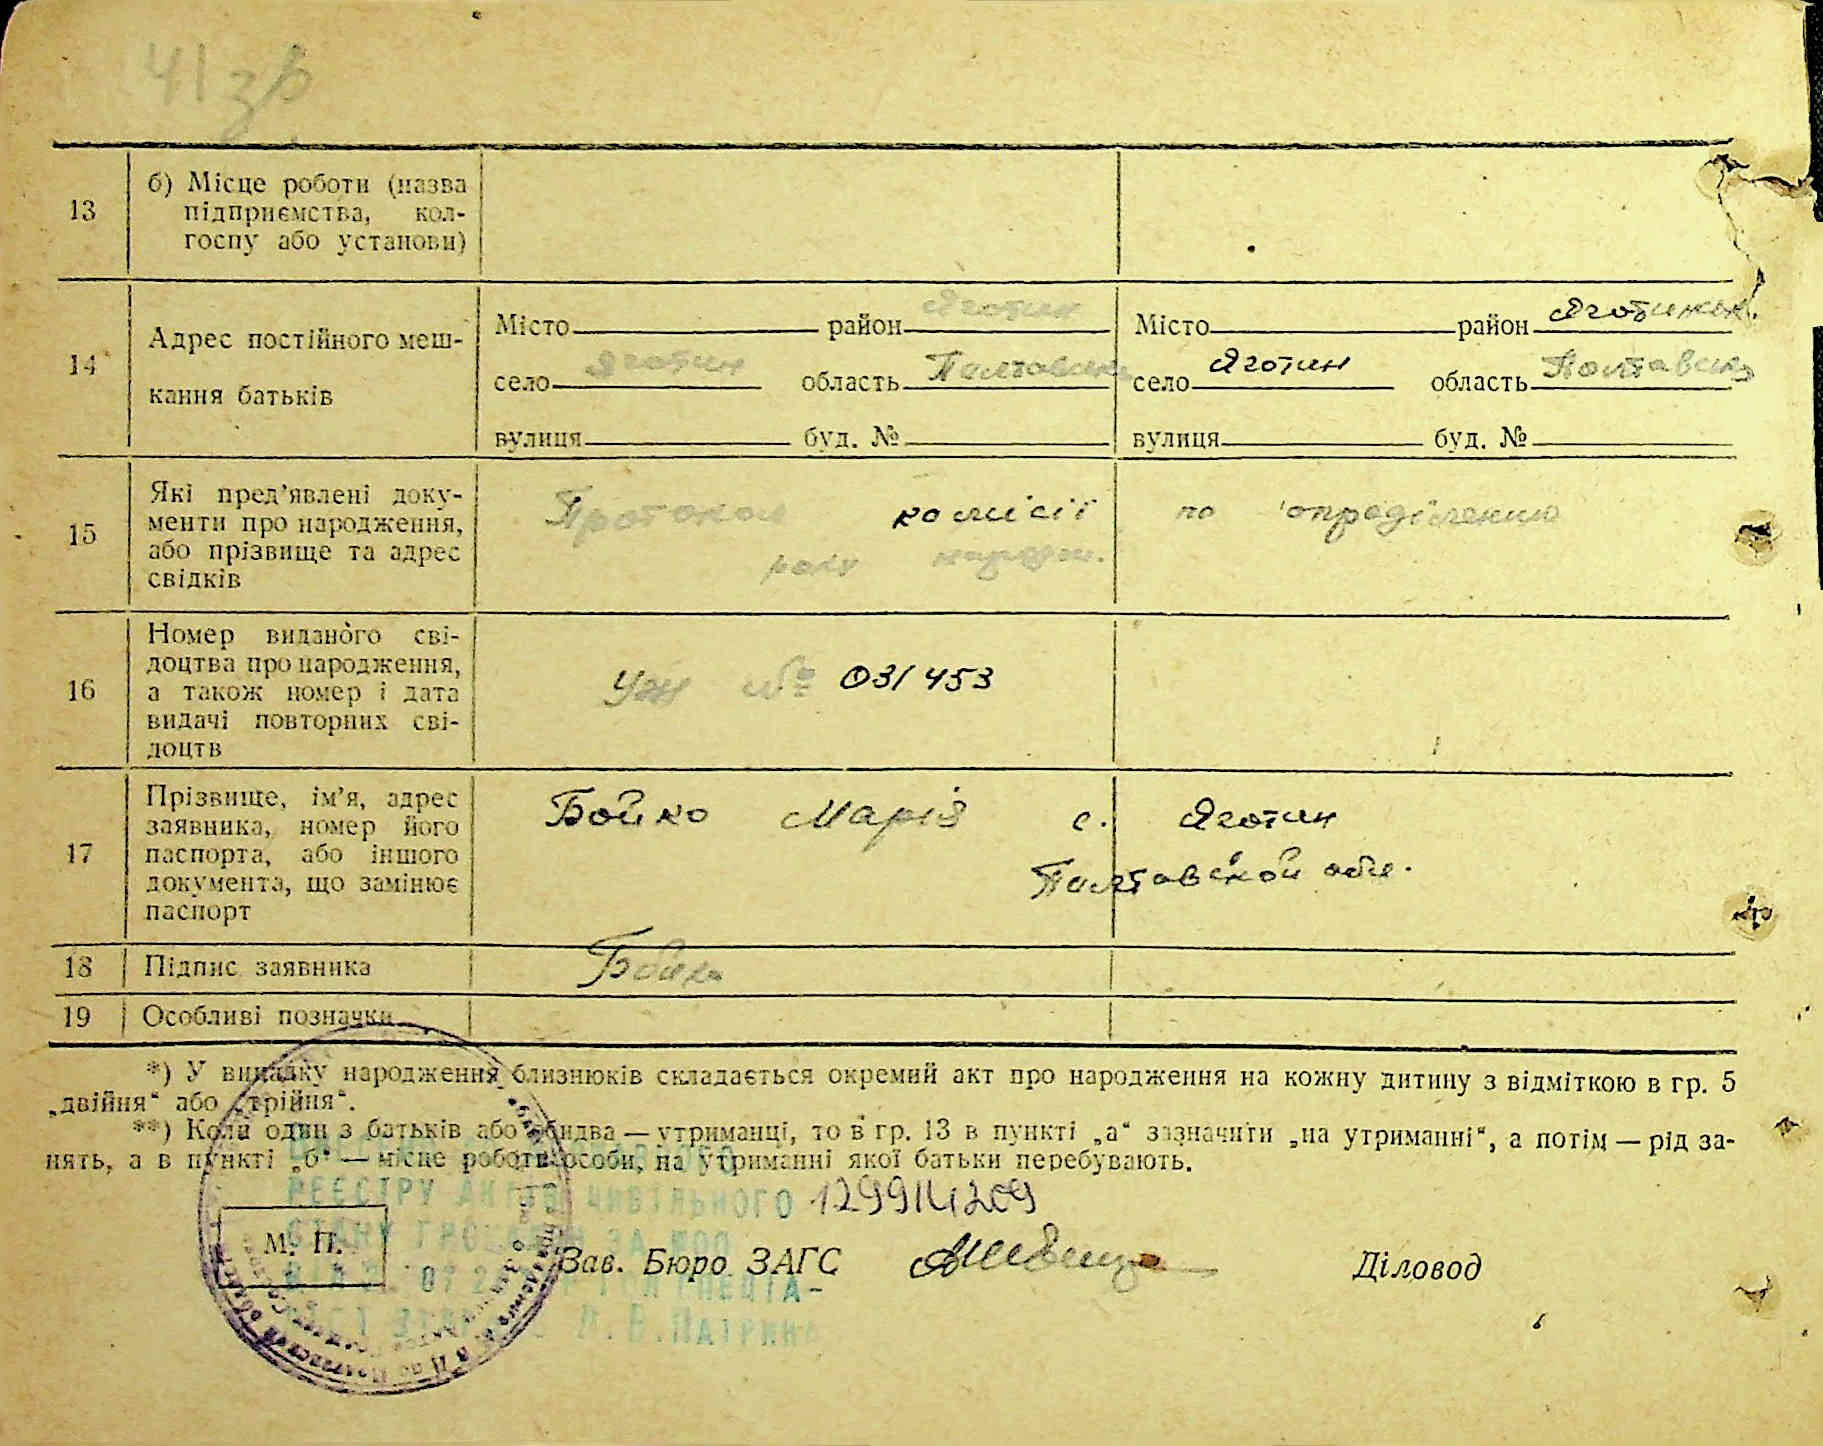 41 зв
13
б) Місце роботи (назва
підприємства, кол-
госпу або установи)
14
Адрес постійного меш-
кання батьків
Місто район Яготин
село Яготин область Полтавськ
вулиця буд. №
Місто район Яготинськ.
село Яготин область Полтавськ
вулиця буд. №
15
Які пред’явлені доку-
менти про народження,
або прізвище та адрес
свідків
Протокол комісії по опреділенню
року народж.
16
Номер виданого сві-
доцтва про народження,
а також номер і дата
видачі повторних сві-
доцтв
УЖ № 031453
17
Прізвище, ім’я, адрес
заявника, номер його
паспорта, або іншого
документа, що замінює
паспорт
Бойко Марія с. Яготин
Полтавской обл.
18
Підпис заявника
Бойко
19
Особливі позначки
*) У випадку народження близнюків складається окремий акт про народження на кожну дитину з відміткою в гр. 5
„двійня“ або „трійня“.
**) Коли один з батьків або обидва — утриманці, то в гр. 13 в пункті „а“ зазначити „на утриманні“, а потім — рід за-
нять, а в пункті „б“ — місце роботи особи, на утриманні якої батьки перебувають.
РЕЄСТРУ АКТІВ ЦИВІЛЬНОГО 129914209
СТАНУ ГРОМАДЯН ЗА
М. П.
Зав. Бюро ЗАГС
Діловод